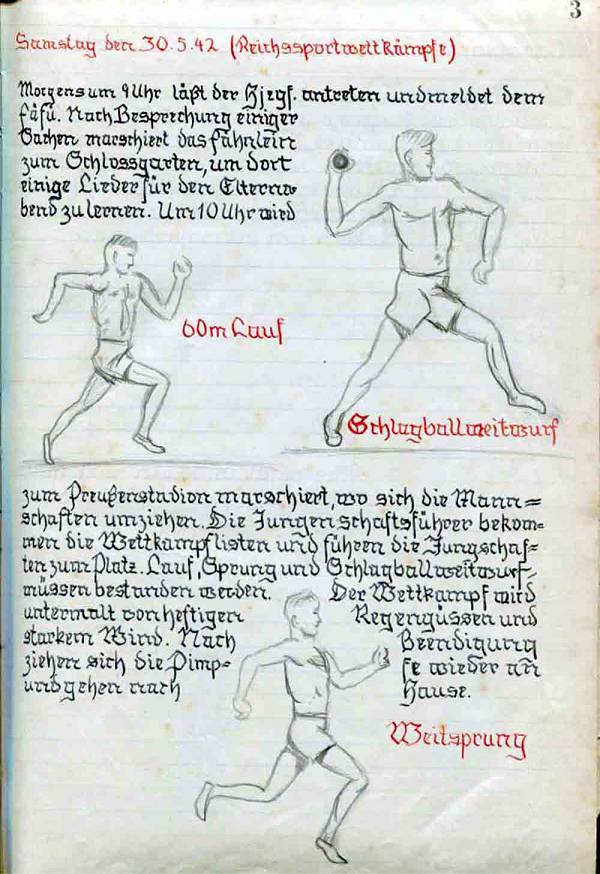 3
Samstag den 30.5.42 (Reichssportwettkämpfe)
Morgens um 9 Uhr läßt der Hjzgf. antreten und meldet dem
Fäfü. Nach Besprechung einiger
Sachen marschiert das Fähnlein
zum Schlossgarten, um dort
einige Lieder für den Elterna=
bend zu lernen. Um 10 Uhr wird
60m Lauf
Schlagballweitwurf
zum Preußenstadion marschiert, wo sich die Mann=
schaften umziehen. Die Jungenschaftsführer bekom=
men die Wettkampflisten und führen die Jungschaf=
ten zum Platz. Lauf, Sprung und Schlagballweitwurf
müssen bestanden werden. Der Wettkampf wird
untermalt von heftigen Regengüssen und
starkem Wind. Nach Beendigung
ziehen sich die Pimp= fe wieder an
und gehen nach Hause.
Weitsprung